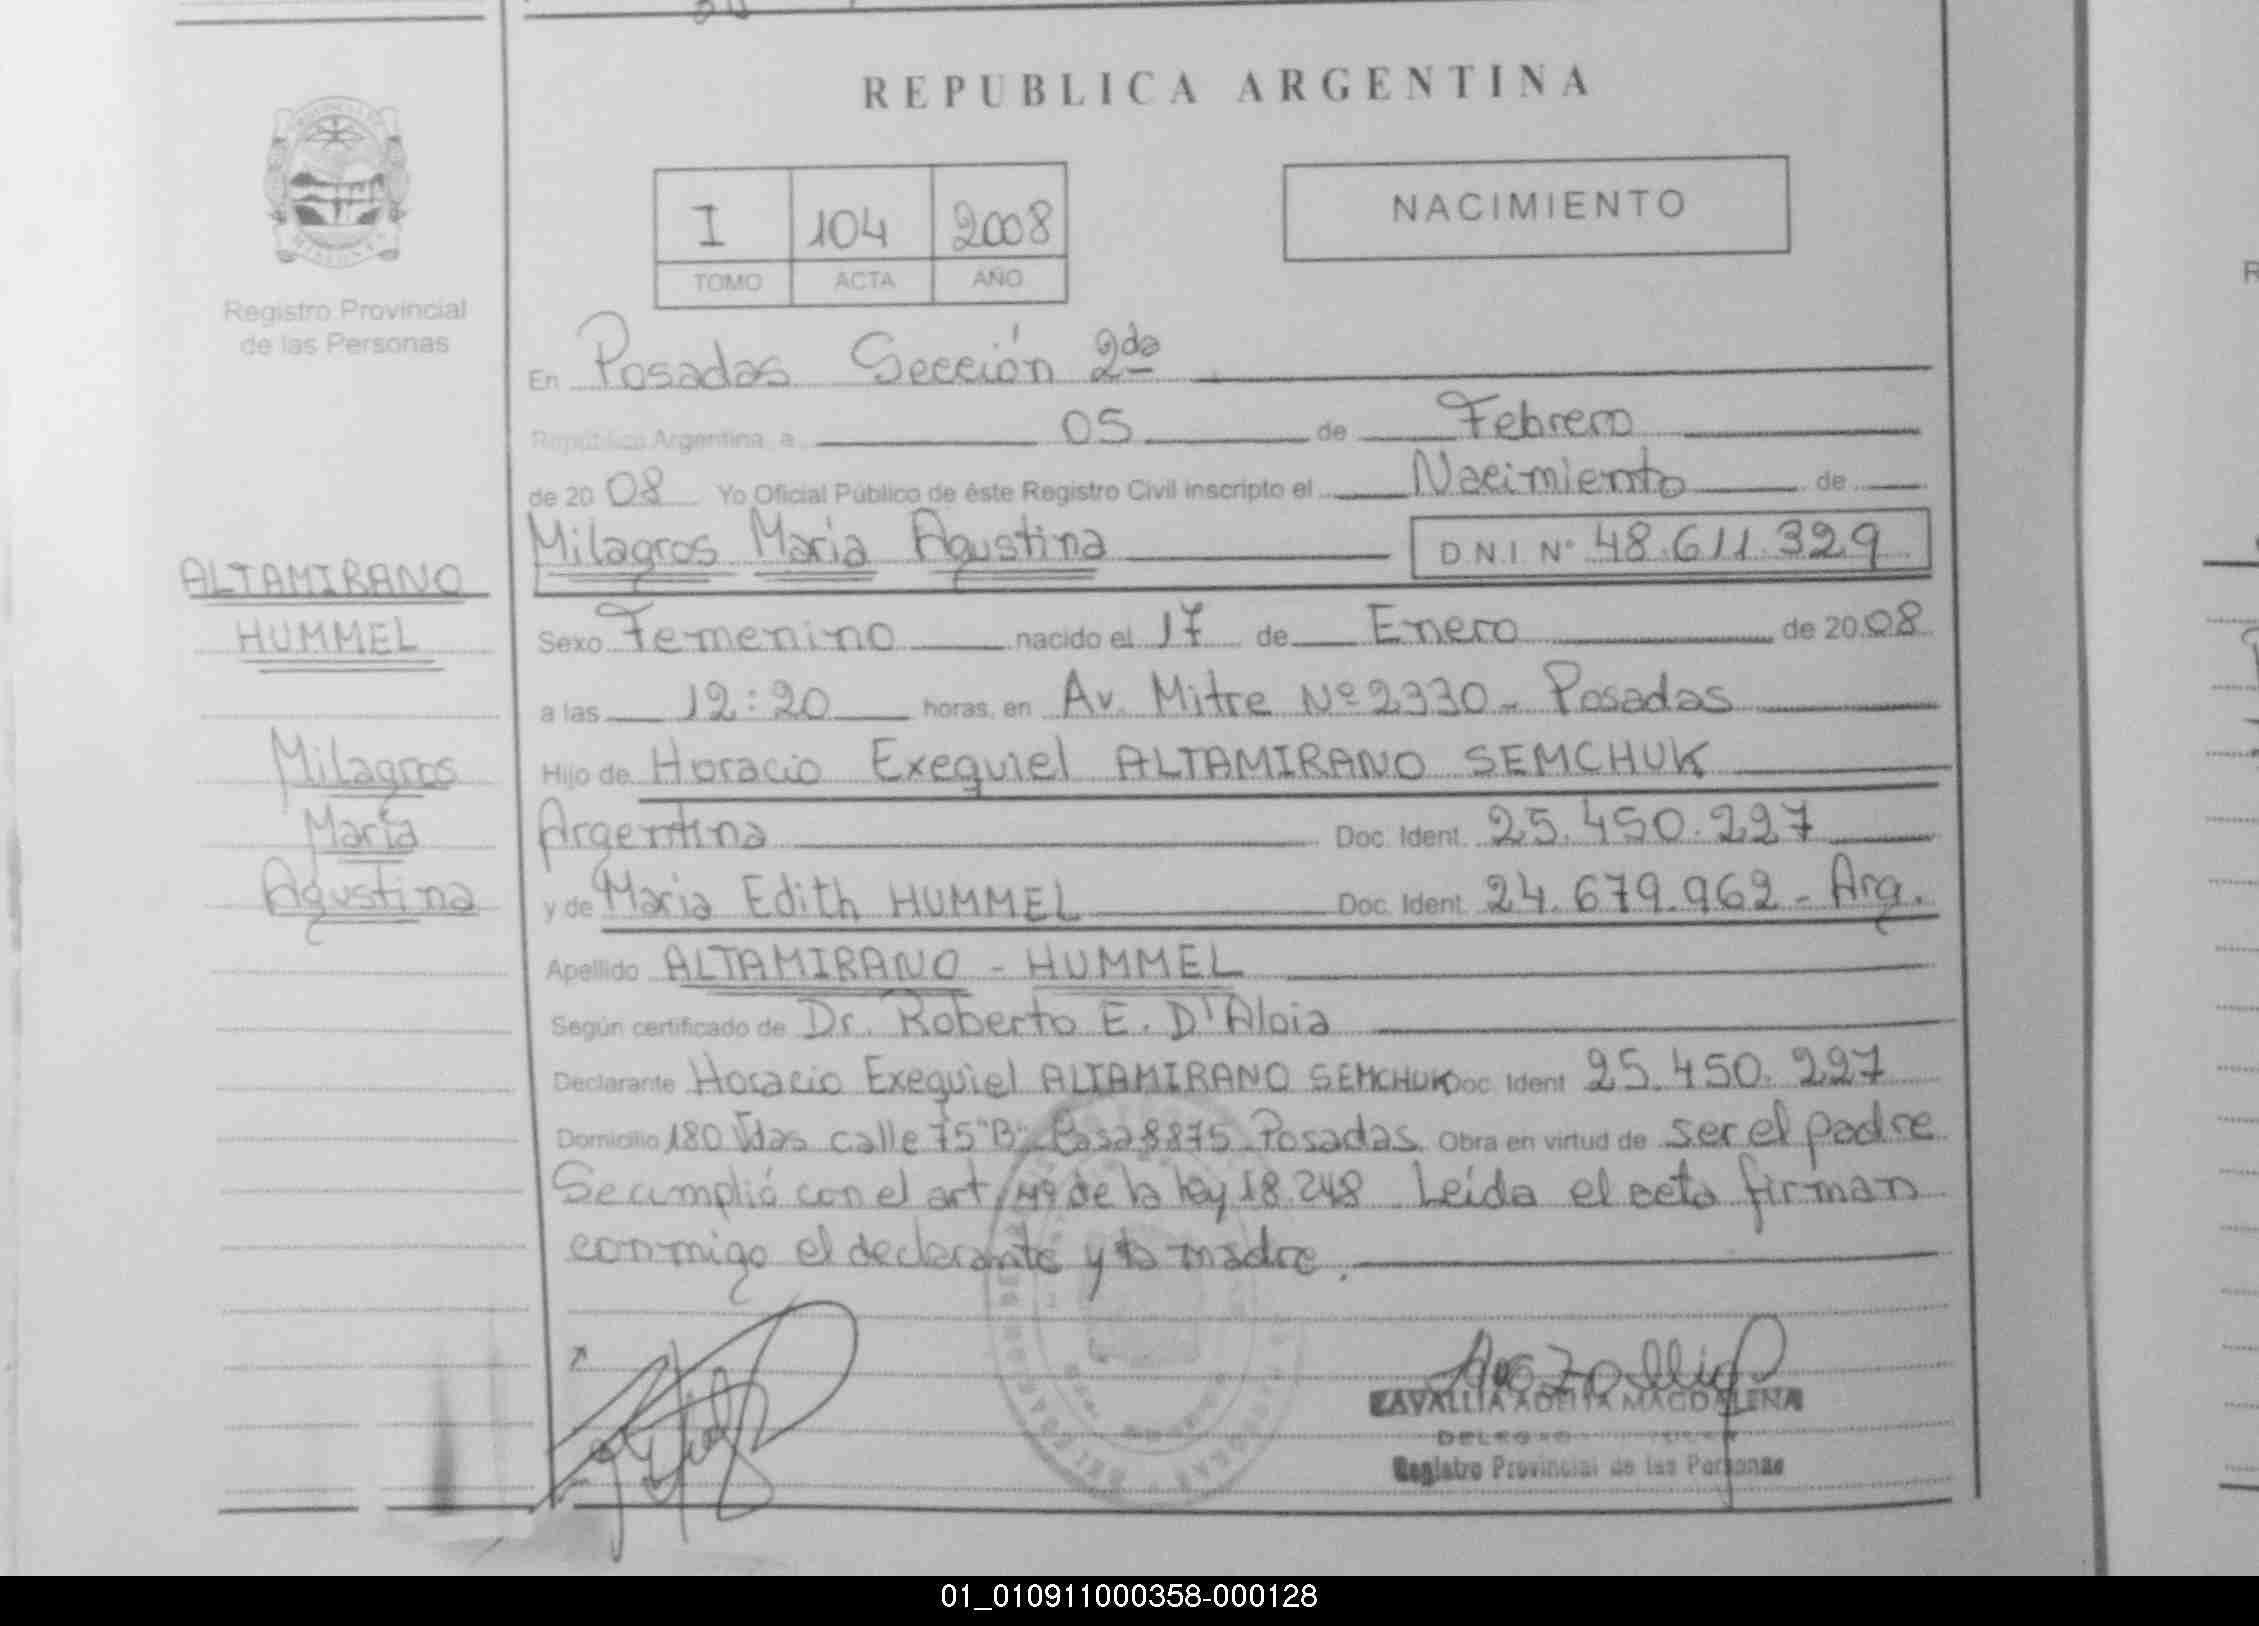 REPUBLICA ARGENTINA
NACIMIENTO
I 104 2008
TOMO ACTA AÑO
Registro Provincial
de las Personas
En Posadas Sección 2da
República Argentina, a 05 de Febrero
de 2008 Yo Oficial Público de éste Registro Civil inscripto el Nacimiento de
Milagros Maria Agustina DNI Nº 48.611.329
ALTAMIRANO
HUMMEL
Milagros
María
Agustina
Sexo Femenino nacido el 17 de Enero de 2008
a las 12:20 horas, en Av. Mitre Nº 2330 - Posadas
Hijo de Horacio Exequiel ALTAMIRANO SEMCHUK
Argentina Doc. Ident. 25.450.227
y de Maria Edith HUMMEL Doc. Ident. 24.679.962 - Arg.
Apellido ALTAMIRANO - HUMMEL
Según certificado de Dr. Roberto E. D'Aloia
Declarante Horacio Exequiel ALTAMIRANO SEMCHUK Doc. Ident 25.450.227
Domicilio 180 Vdas calle 75"B" Casa 8875 Posadas. Obra en virtud de ser el padre
Se cumplió con el art. de la ley 18.248 Leída el acta firman
conmigo el declarante y la madre.
ZAVALLIA ADELITA MAGDALENA
Registro Provincial de las Personas
01_010911000358-000128